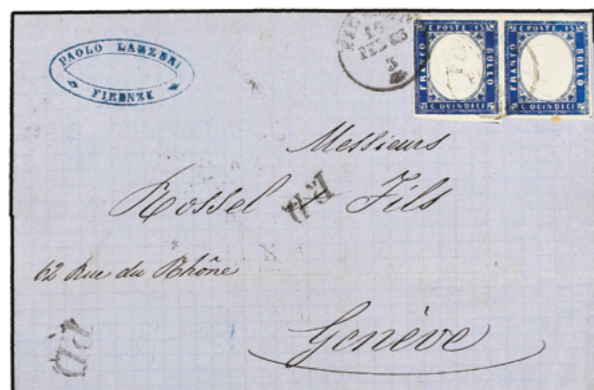 PAOLO
FIRENZE
FIRENZE
FEB 63
3
C POSTE 15
FRANCO
BOLLO
C QUINDICI
C POSTE 15
FRANCO
BOLLO
C QUINDICI
Messieurs
Rossel & Fils
P.D.
62 Rue du Rhône
Genève
P.D.